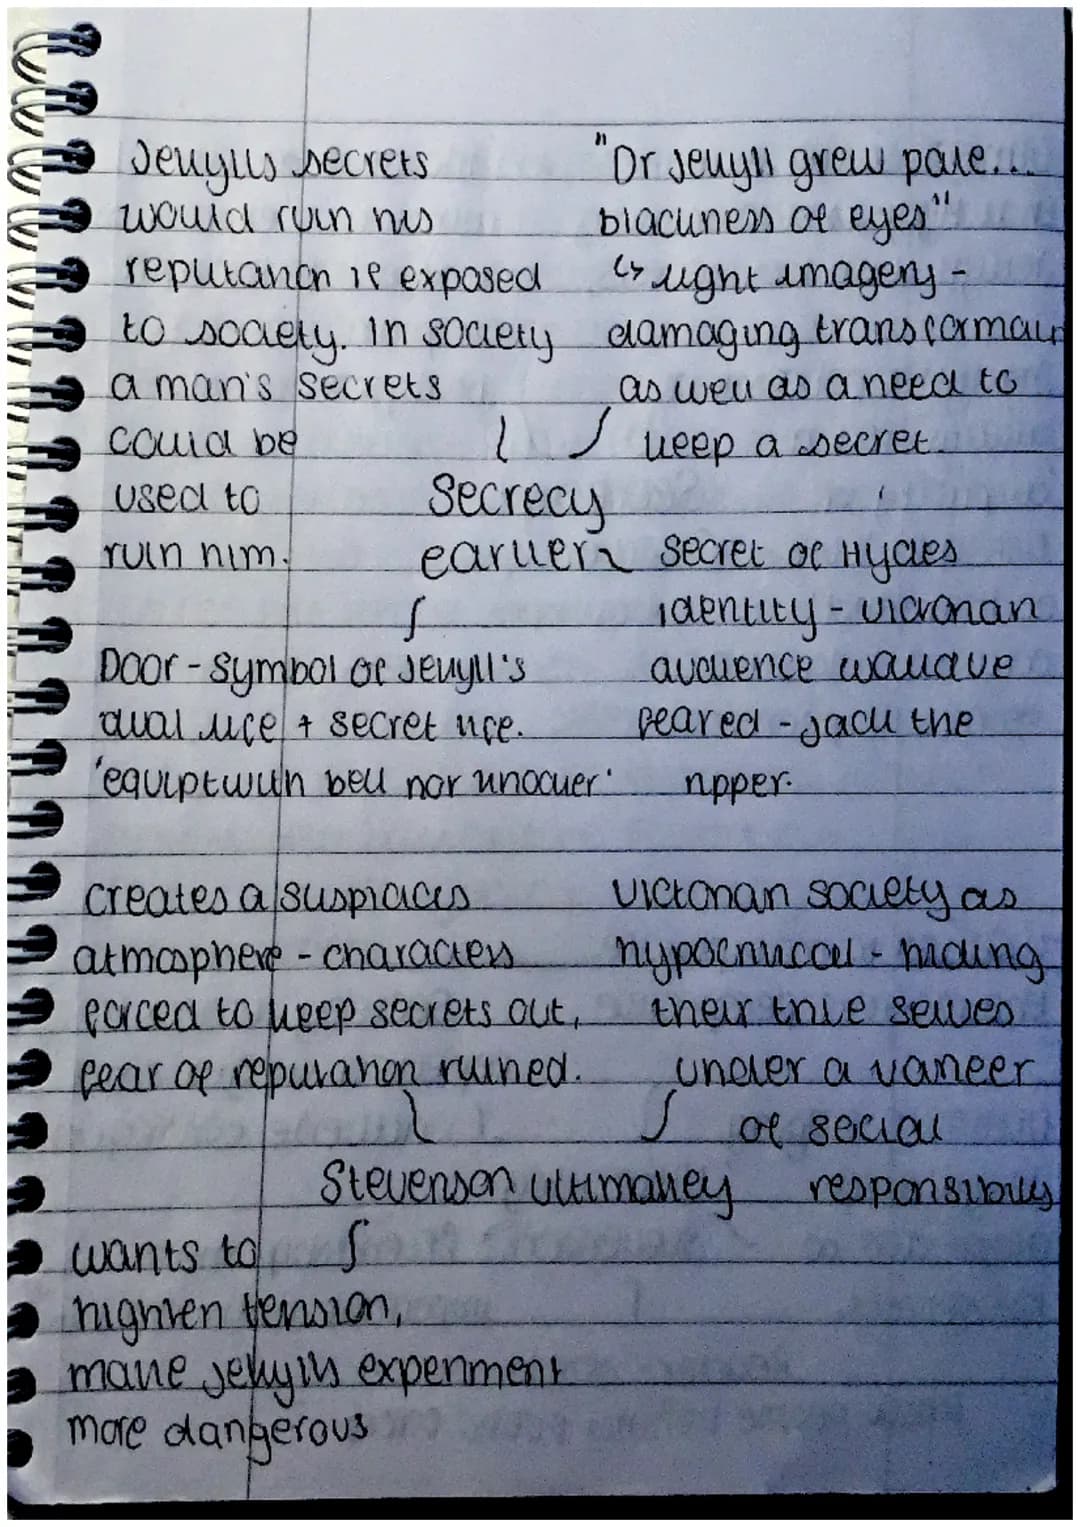 Jekylls secrets
would ruin his
reputation if exposed
to society. In society
a man's secrets
could be
used to
ruin him.
"Dr Jekyll grew pale...
blackness of eyes"
↳ light imagery -
damaging transformati
as well as a need to
keep a secret.
Secrecy
earlier
secret of Hydes
identity - victorian
audience wouldve
feared - jack the
ripper.
Door - symbol of Jekyll's
dual life + secret life.
'equipt with bell nor knocker'
creates a suspicious
atmosphere - characters
forced to keep secrets out,
fear of reputation ruined.
victorian society as
hypocritical - hiding
their true selves
under a vaneer
of social
responsibility
Stevenson ultimatley
wants to
highten tension,
make jekylls experiment
more dangerous